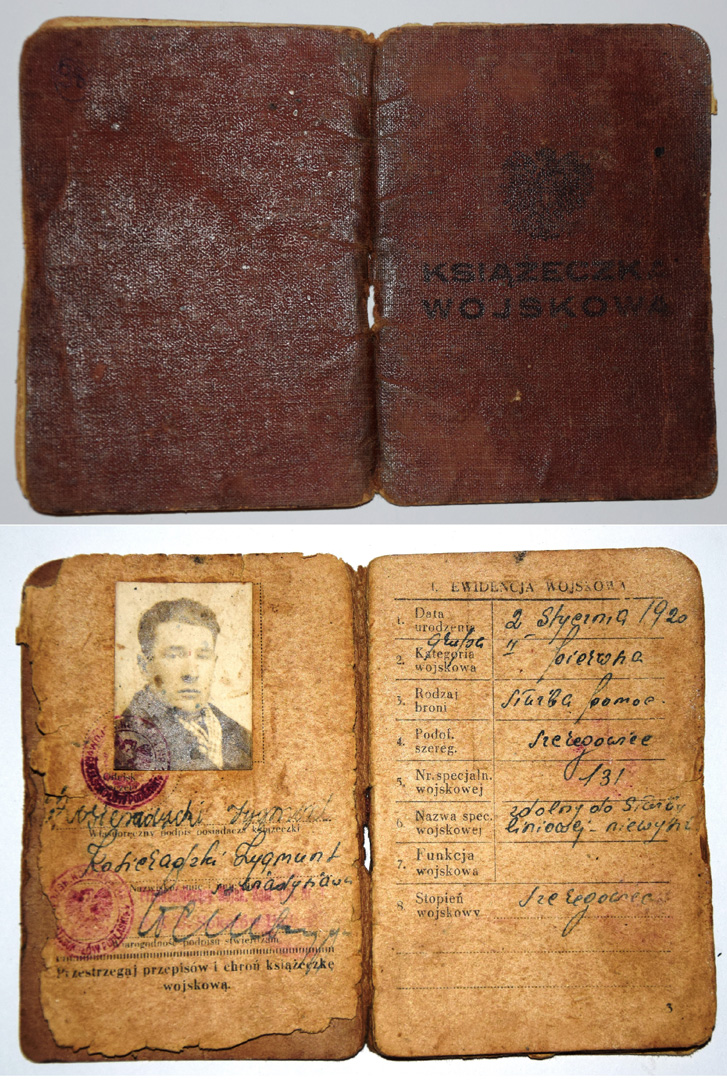 KSIĄŻECZKA
WOJSKOWA
Zygmunt
Własnoręczny podpis posiadacza książeczki
Kosieradzki Zygmunt
Władysława
Przestrzegaj przepisów i chroń książeczkę
wojskową.
I. EWIDENCJA WOJSKOWA
1. Data urodzenia 2 Stycznia 1920
grupa
2. Kategoria wojskowa "I" pierwsza
3. Rodzaj broni służba pomoc.
4. Podof. szereg. szeregowiec
5. Nr. specjaln. wojskowej 131
6. Nazwa spec. wojskowej zdolny do służby liniowej - niewyszk
7. Funkcja wojskowa
8. Stopień wojskowy szeregowiec
3